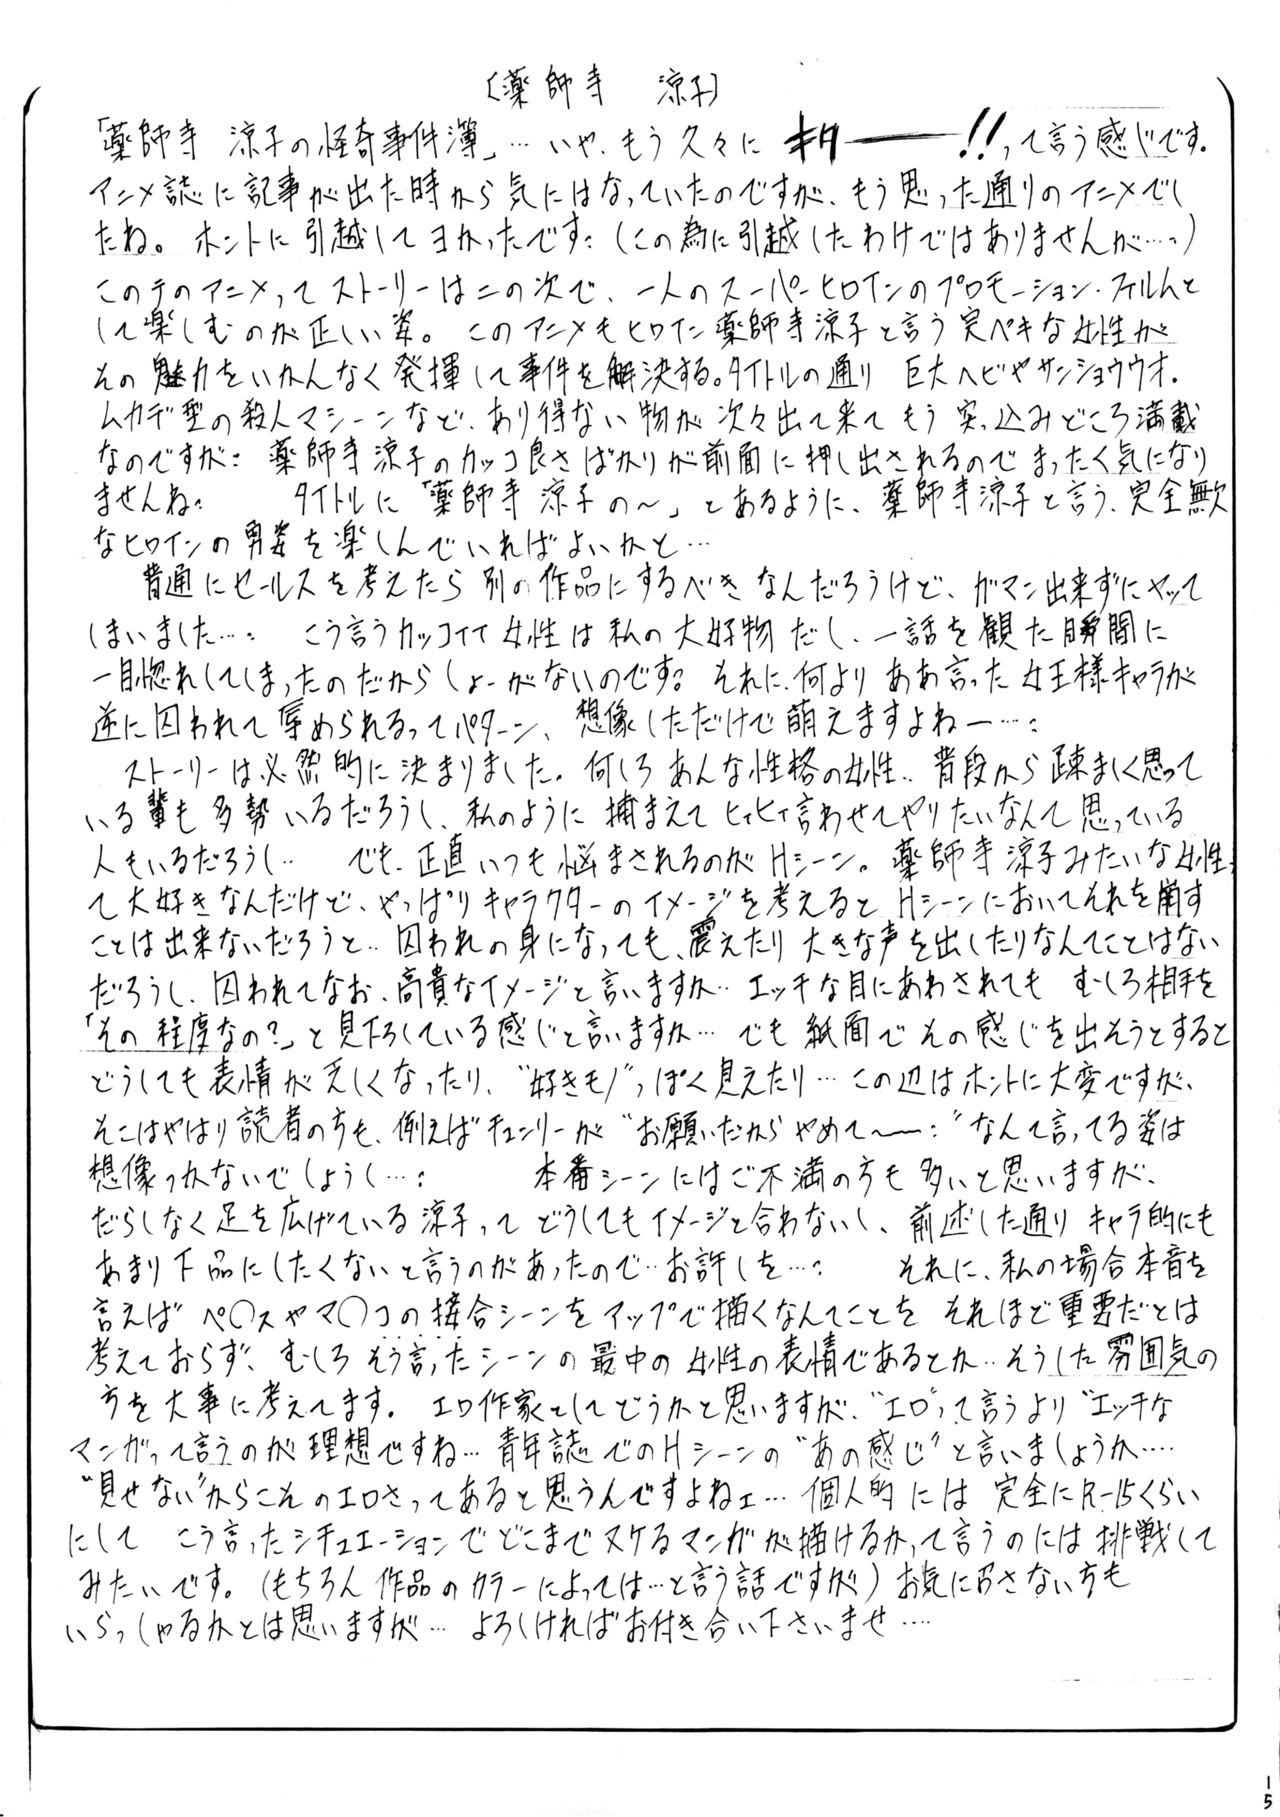 〔薬師寺 涼子〕
「薬師寺 涼子の怪奇事件簿」… いや、もう久々に キター――!!って言う感じです。
アニメ誌に記事が出た時から気にはなっていたのですが、もう思った通りのアニメでし
たね。ホントに引越してヨかったです：（この為に引越したわけではありませんが…。）
このテのアニメってストーリーは二の次で、一人のスーパーヒロインのプロモーション・フィルムと
して楽しむのが正しい姿。このアニメもヒロイン薬師寺涼子と言う完ペキな女性が
その魅力をいかんなく発揮して事件を解決する。タイトルの通り 巨大ヘビやサンショウウオ、
ムカデ型の殺人マシーンなど、あり得ない物が次々出て来てもう突っ込みどころ満載
なのですが： 薬師寺涼子のカッコ良さばかりが前面に押し出されるのでまったく気になり
ませんね。 タイトルに「薬師寺涼子の〜」とあるように、薬師寺涼子と言う、完全無欠
なヒロインの勇姿を楽しんでいればよいかと…
普通にセールスを考えたら別の作品にするべきなんだろうけど、ガマン出来ずにヤッて
しまいました…： こう言うカッコイイ女性は私の大好物だし、一話を観た瞬間に
一目惚れしてしまったのだからしょーがないのです： それに、何よりああ言った女王様キャラが
逆に囚われて辱められるってパターン、想像しただけで萌えますよねー…：
ストーリーは必然的に決まりました。何しろあんな性格の女性‥普段から疎ましく思って
いる輩も多勢いるだろうし、私のように捕まえてヒィヒィ言わせてやりたいなんて思っている
人もいるだろうし‥ でも、正直いつも悩まされるのがHシーン。薬師寺涼子みたいな女性っ
て大好きなんだけど、やっぱりキャラクターのイメージを考えるとHシーンにおいてそれを崩す
ことは出来ないだろうと‥囚われの身になっても、震えたり大きな声を出したりなんてことはない
だろうし、囚われてなお、高貴なイメージと言いますか‥エッチな目にあわされてもむしろ相手を
「その程度なの？」と見下ろしている感じと言いますか… でも紙面でその感じを出そうとすると
どうしても表情が乏しくなったり、“好きモノ”っぽく見えたり… この辺はホントに大変ですが、
そこはやはり読者の方も、例えばチュンリーが“お願いだからやめて〜〜：”なんて言ってる姿は
想像つかないでしょうし…： 本番シーンにはご不満の方も多いと思いますが、
だらしなく足を広げている涼子ってどうしてもイメージと合わないし、前述した通りキャラ的にも
あまり下品にしたくないと言うのがあったので‥お許しを…： それに、私の場合本音を
言えばペ〇スやマ〇コの接合シーンをアップで描くなんてことをそれほど重要だとは
考えておらず、むしろそう言ったシーンの最中の女性の表情であるとか‥そうした雰囲気の
方を大事に考えてます。エロ作家としてどうかと思いますが、“エロ”って言うより“エッチな
マンガって言うのが理想ですね… 青年誌でのHシーンの“あの感じ”と言いましょうか‥‥
“見せない”からこそのエロさってあると思うんですよねェ… 個人的には完全にR-15くらい
にして こう言ったシチュエーションでどこまでヌケるマンガが描けるかって言うのには挑戦して
みたいです。（もちろん作品のカラーによっては…と言う話ですが）お気に召さない方も
いらっしゃるかとは思いますが… よろしければお付き合い下さいませ‥‥
15